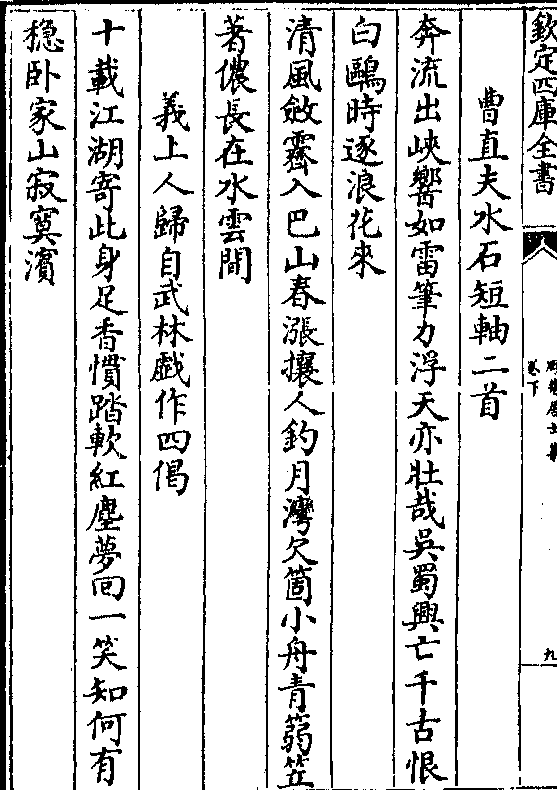 欽定四庫全書
卷下
九
曹直夫水石短軸二首
奔流出峽響如雷筆力浮天亦壯哉吳蜀興亡千古恨
白鷗時逐浪花來
清風斂霧入巴山春漲攘人釣月灣欠箇小舟青篛笠
著儂長在水雲間
義上人歸自武林戯作四偈
十載江湖寄此身足香慣踏軟紅塵夢回一笑知何有
穏卧家山寂寞濱